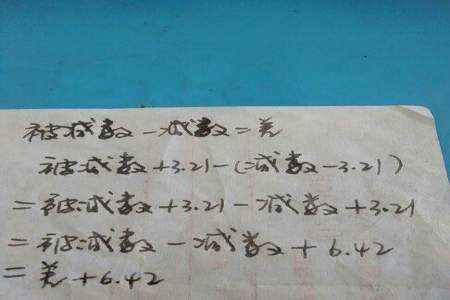 被减数-减数=差
被减数+3.21-(减数-3.21)
=被减数+3.21-减数+3.21
=被减数-减数+6.42
=差+6.42